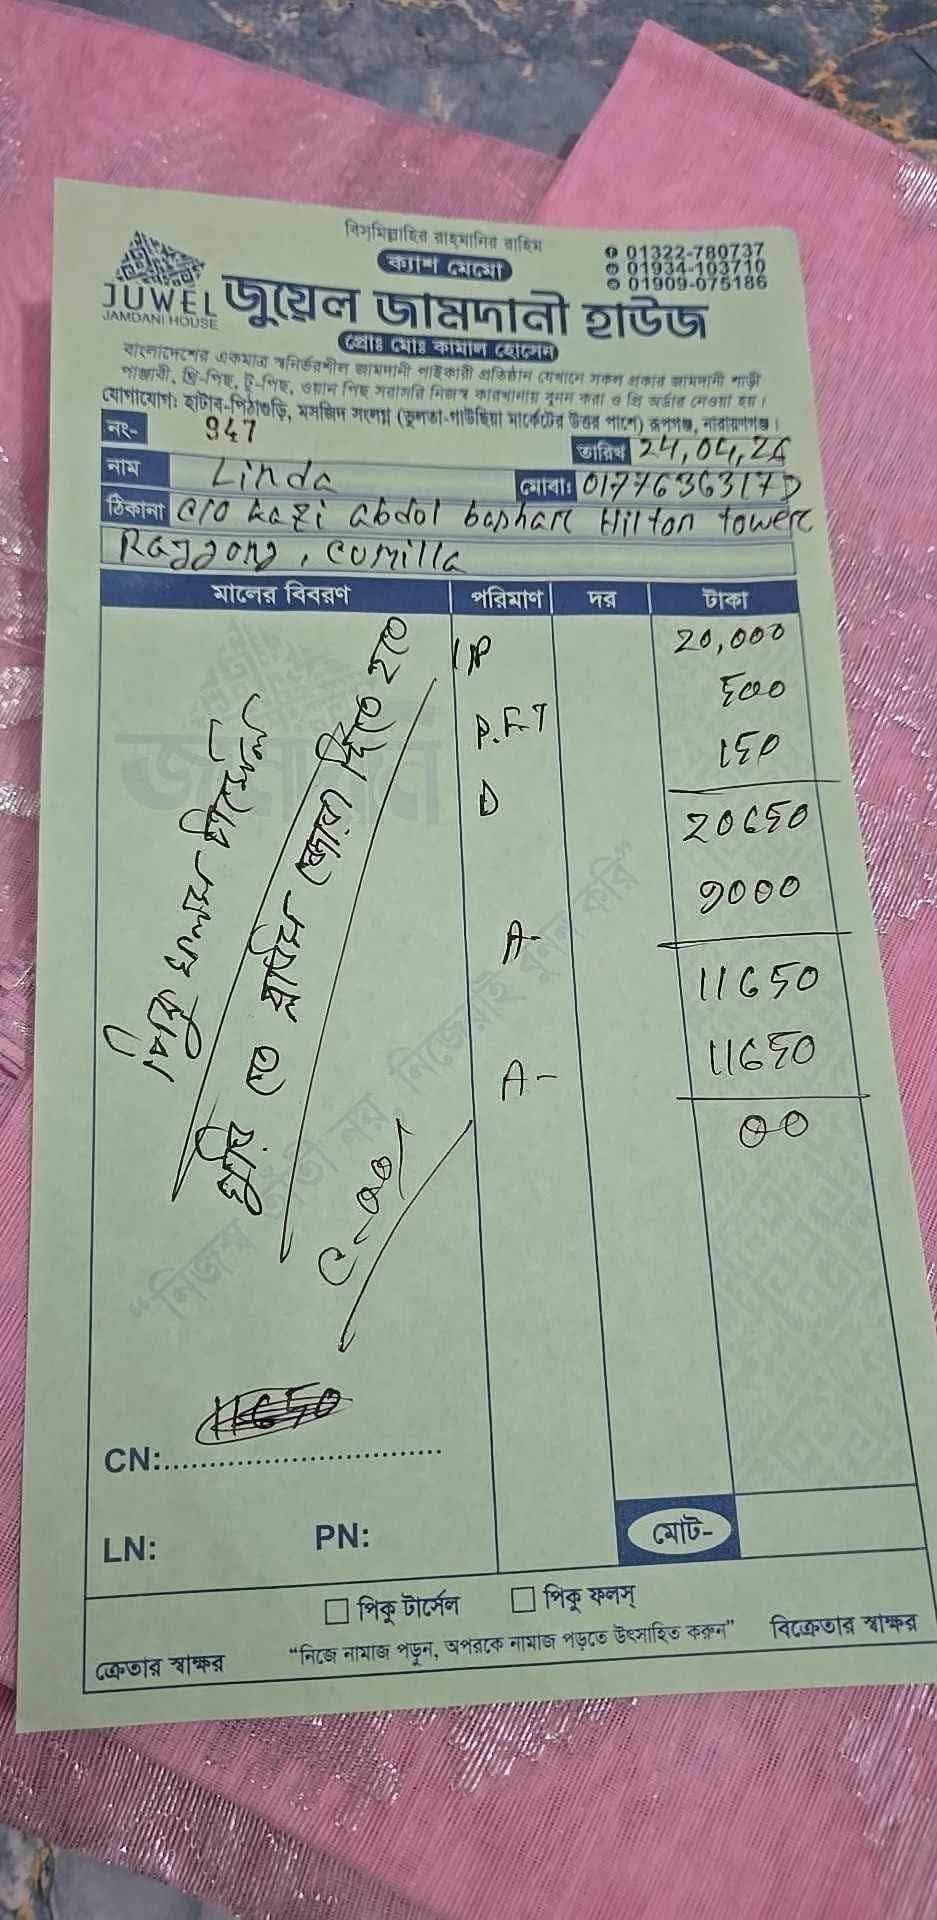 বিসমিল্লাহির রাহমানির রাহিম
ক্যাশ মেমো
01322-780737
01934-103710
01909-075186
JUWEL
JAMDANI HOUSE
জুয়েল জামদানী হাউজ
প্রোঃ মোঃ কামাল হোসেন
বাংলাদেশের একমাত্র স্বনির্ভরশীল জামদানী পাইকারী প্রতিষ্ঠান যেখানে সকল প্রকার জামদানী শাড়ী
পাঞ্জাবী, থ্রি-পিছ, টু-পিছ, ওয়ান পিছ সরাসরি নিজস্ব কারখানায় বুনন করা ও প্রি অর্ডার নেওয়া হয়।
যোগাযোগঃ হাটাব-পিঠাগুড়ি, মসজিদ সংলগ্ন (ভুলতা-গাউছিয়া মার্কেটের উত্তর পাশে) রূপগঞ্জ, নারায়ণগঞ্জ।
নং- 947
তারিখ 24,04,26
নাম Linda
মোবাঃ
ঠিকানা c/o kazi abdol bashar Hilton tower
Raggong, cumilla
মালের বিবরণ পরিমাণ দর টাকা
1P 20,000
P.F.T 500
D 150
20650
A- 9000
11650
A- 11650
00
পিকু ফলস টার্সেল
দিতে হবে
C-00
"নিজস্ব তাঁতী নয়, নিজেরাই বুনন করি"
11650
CN:
LN: PN:
মোট-
পিকু টার্সেল পিকু ফলস্
ক্রেতার স্বাক্ষর "নিজে নামাজ পড়ুন, অপরকে নামাজ পড়তে উৎসাহিত করুন" বিক্রেতার স্বাক্ষর